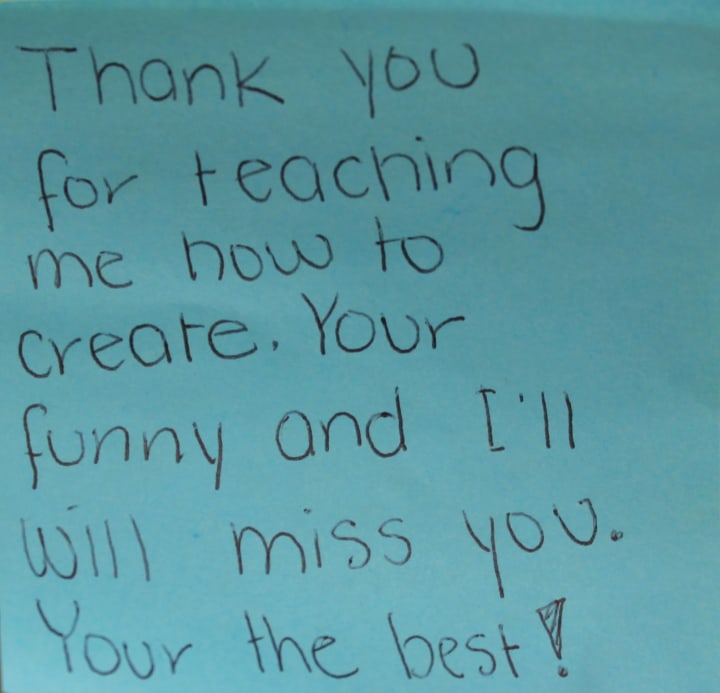 Thank you
for teaching
me how to
create. Your
funny and I'll
will miss you.
Your the best!